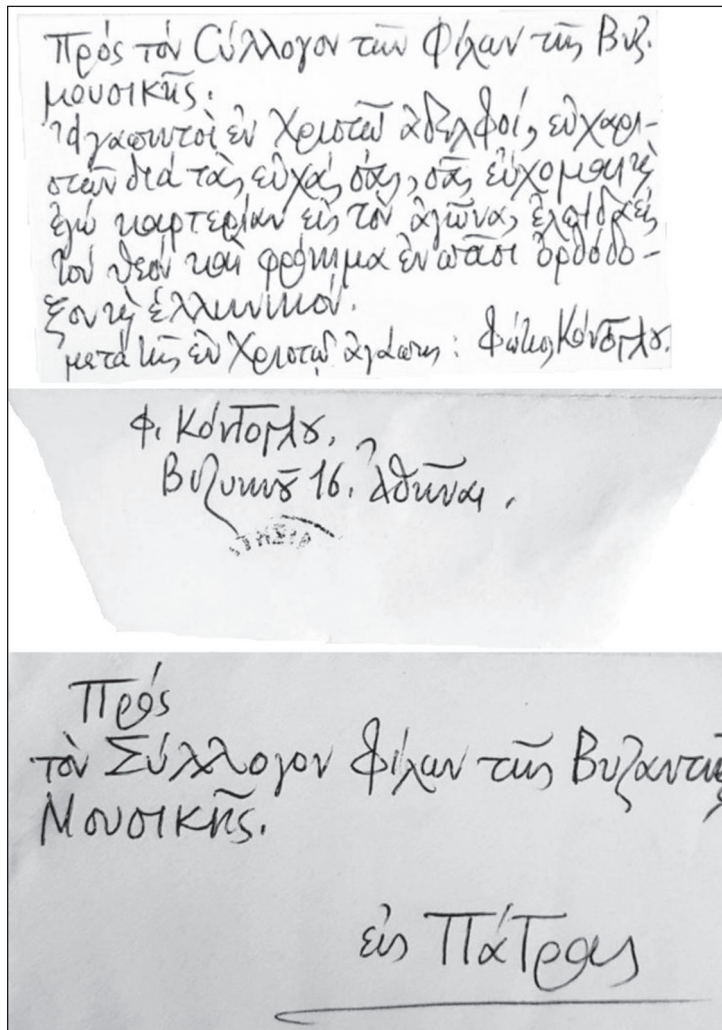 Πρός τόν Σύλλογον τῶν Φίλων τῆς Βυζ.
μουσικῆς.
Ἀγαπητοὶ ἐν Χριστῷ ἀδελφοί, εὐχαρι-
στῶν διά τὰς εὐχάς σας, σᾶς εὔχομαι κ̀
ἐγώ καρτερίαν εἰς τὸν ἀγῶνα, ἐλπίδα εἰς
τόν Θεόν καὶ φρόνημα ἐν πᾶσι ὀρθόδο-
ξον κ̀ ἑλληνικόν.
μετά τῆς ἐν Χριστῷ ἀγάπης: Φώτης Κόντογλου.
Φ. Κόντογλου,
Βιζυηνοῦ 16. Ἀθῆναι.
Πρός
τὸν Σύλλογον Φίλων τῆς Βυζαντιν
Μουσικῆς.
εἰς Πάτρας